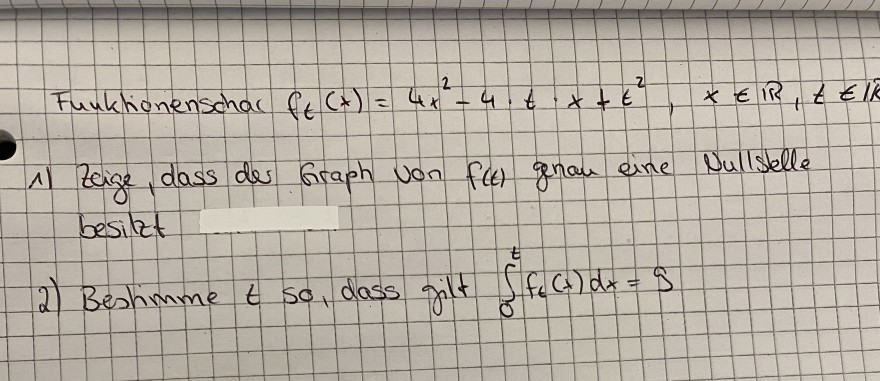 Funktionenschar fₜ(x) = 4x² - 4 · t · x + t² , x ∈ ℝ , t ∈ ℝ
1) Zeige, dass der Graph von f(t) genau eine Nullstelle
besitzt
2) Bestimme t so, dass gilt ∫₀ᵗ fₜ(x) dx = 9